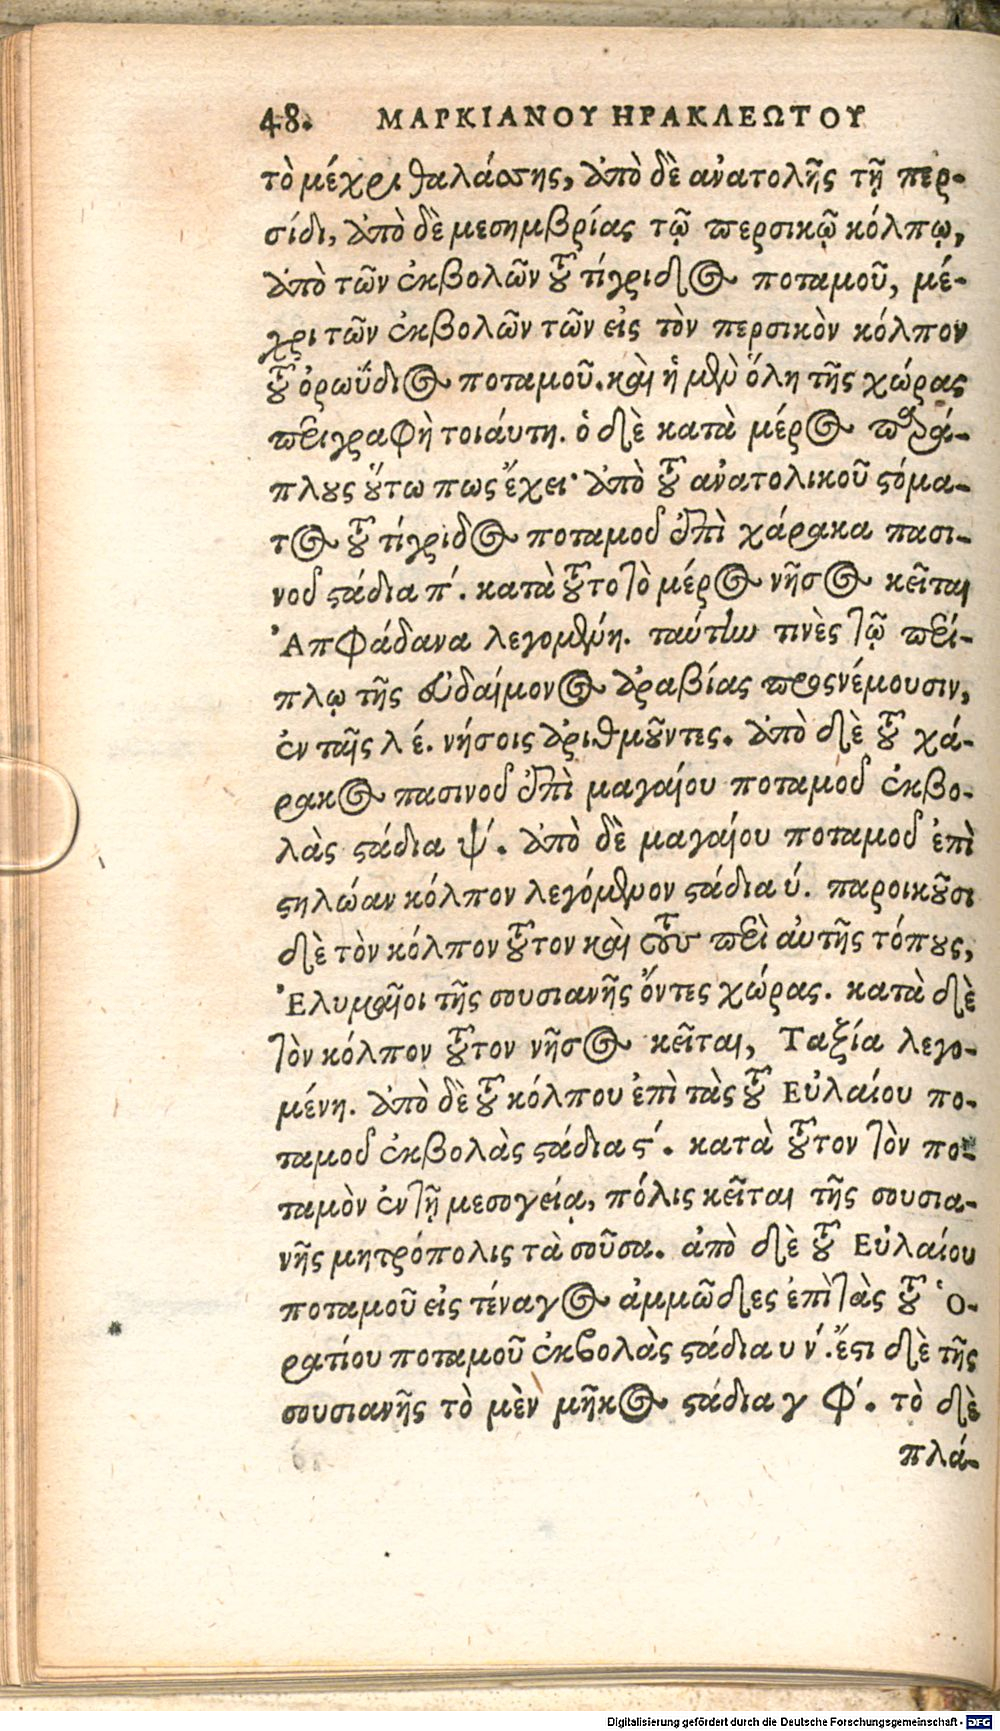 48. ΜΑΡΚΙΑΝΟΥ ΗΡΑΚΛΕΩΤΟΥ
τὸ μέχρι θαλάσσης, ἀπὸ δὲ ἀνατολῆς τῇ περ-
σίδι, ἀπὸ δὲ μεσημβρίας τῷ περσικῷ κόλπῳ,
ἀπὸ τῶν ἐκβολῶν τοῦ τίγριδος ποταμοῦ, μέ-
χρι τῶν ἐκβολῶν τῶν εἰς τὸν περσικὸν κόλπον
τοῦ ὀρωΰδιος ποταμοῦ. καὶ ἡ μὲν ὅλη τῆς χώρας
περιγραφὴ τοιάυτη. ὁ δὲ κατὰ μέρος παρά-
πλους οὕτω πως ἔχει· ἀπὸ τοῦ ἀνατολικοῦ στόμα-
τος τοῦ τίγριδος ποταμοῦ ἐπὶ χάρακα πασι-
νοῦ στάδια π´. κατὰ τοῦτο τὸ μέρος νῆσος κεῖται
Ἀπφάδανα λεγομένη. ταύτην τινὲς τῷ περί-
πλῳ τῆς εὐδαίμονος ἀραβίας προσνέμουσιν,
ἐν ταῖς λ έ. νήσοις ἀριθμοῦντες. ἀπὸ δὲ τοῦ χά-
ρακος πασινοῦ ἐπὶ μαγαίου ποταμοῦ ἐκβο-
λὰς στάδια ψ´. ἀπὸ δὲ μαγαίου ποταμοῦ ἐπὶ
στηλώαν κόλπον λεγόμενον στάδια ύ. παροικοῦσι
δὲ τὸν κόλπον τοῦτον καὶ τοὺς περὶ αὐτῆς τόπους,
Ἐλυμαῖοι τῆς σουσιανῆς ὄντες χώρας. κατὰ δὲ
τὸν κόλπον τοῦτον νῆσος κεῖται, Ταξία λεγο-
μένη. ἀπὸ δὲ τοῦ κόλπου ἐπὶ τὰς τοῦ Εὐλαίου πο-
ταμοῦ ἐκβολὰς στάδια ϛ´. κατὰ τοῦτον τὸν πο-
ταμὸν ἐν τῇ μεσογείᾳ, πόλις κεῖται τῆς σουσια-
νῆς μητρόπολις τὰ σοῦσα. ἀπὸ δὲ τοῦ Εὐλαίου
ποταμοῦ εἰς τέναγος ἀμμῶδες ἐπὶ τὰς τοῦ Ὀ-
ρατίου ποταμοῦ ἐκβολὰς στάδια υ ν´. ἔστι δὲ τῆς
σουσιανῆς τὸ μὲν μῆκος στάδια γ φ´. τὸ δὲ
πλά-
Digitalisierung gefördert durch die Deutsche Forschungsgemeinschaft - DFG